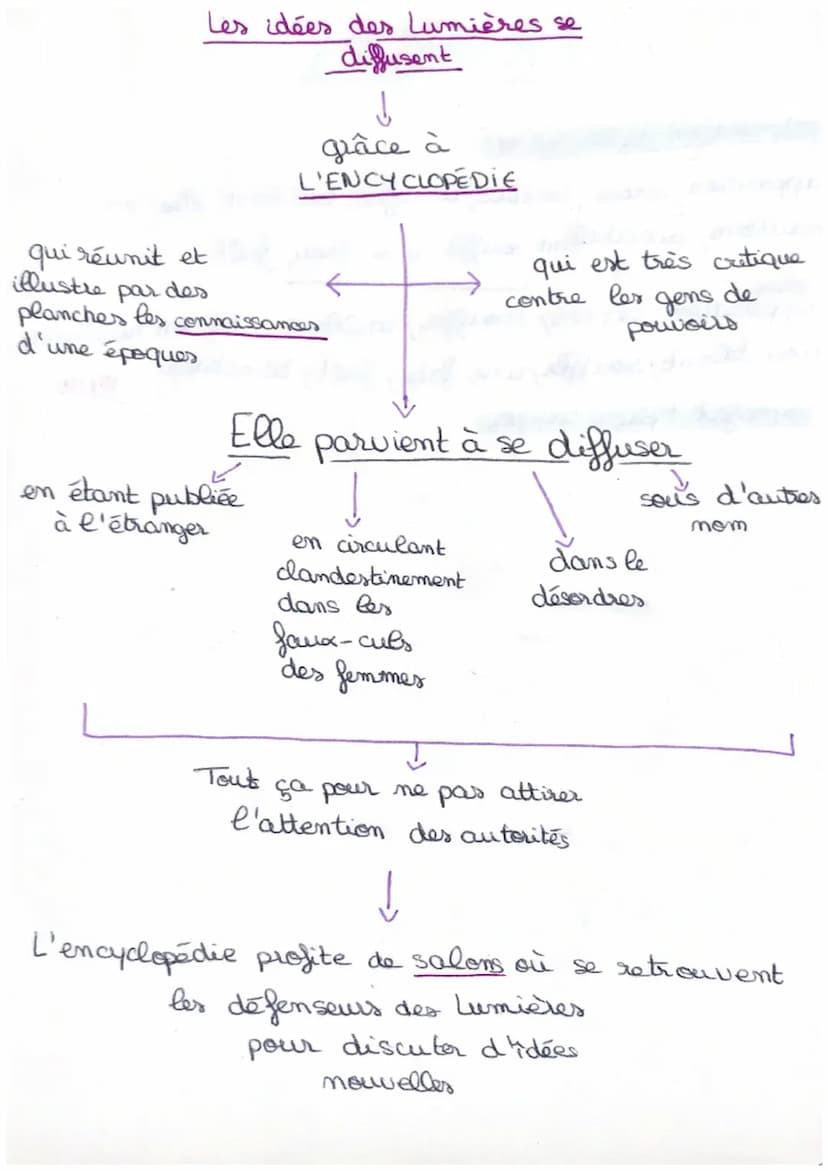 Les idées des Lumières se
diffusent
grâce à
L'ENCYCLOPÉDIE
qui réunit et
illustre par des
planches les connaissances
d'une époques
qui est très critique
contre les gens de
pouvoirs
Elle parvient à se diffuser
en étant publiée
à l'étranger
en circulant
clandestinement
dans les
faux-culs
des femmes
dans le
désordres
sous d'autres
nom
Tout ça pour ne pas attirer
l'attention des autorités
L'encyclopédie profite de salons où se retrouvent
les défenseurs des Lumières
pour discuter d'idées
nouvelles